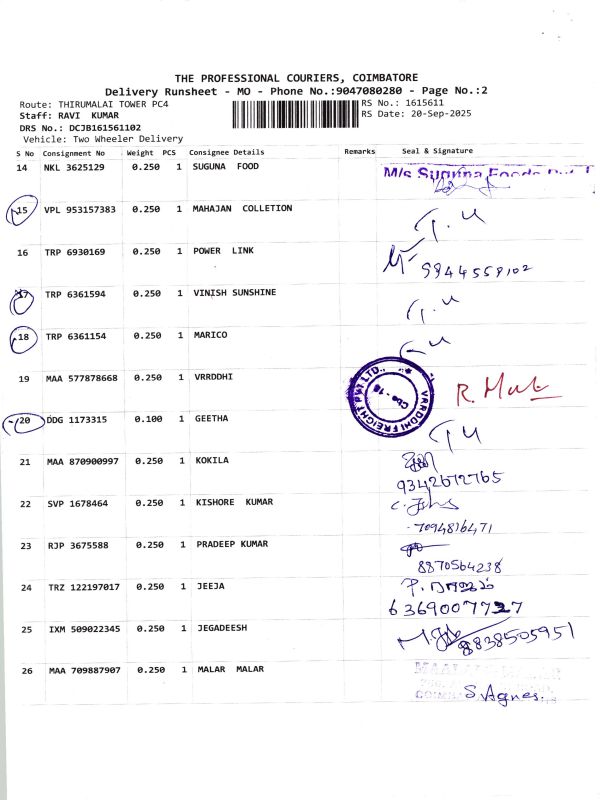 THE PROFESSIONAL COURIERS, COIMBATORE
Delivery Runsheet - MO - Phone No.:9047080280 - Page No.:2
Route: THIRUMALAI TOWER PC4 RS No.: 1615611
Staff: RAVI KUMAR RS Date: 20-Sep-2025
DRS No.: DCJB161561102
Vehicle: Two Wheeler Delivery
S No Consignment No Weight PCS Consignee Details Remarks Seal & Signature
14 NKL 3625129 0.250 1 SUGUNA FOOD M/s Suguna Foods
15 VPL 953157383 0.250 1 MAHAJAN COLLETION
16 TRP 6930169 0.250 1 POWER LINK
9944559102
17 TRP 6361594 0.250 1 VINISH SUNSHINE
18 TRP 6361154 0.250 1 MARICO
19 MAA 577878668 0.250 1 VRRDDHI VARDDHI FREIGHT PVT LTD.,
20 DDG 1173315 0.100 1 GEETHA
21 MAA 870900997 0.250 1 KOKILA
9342672765
22 SVP 1678464 0.250 1 KISHORE KUMAR
7094816471
23 RJP 3675588 0.250 1 PRADEEP KUMAR
8870564238
24 TRZ 122197017 0.250 1 JEEJA
6369007727
25 IXM 509022345 0.250 1 JEGADEESH 8838505951
26 MAA 709887907 0.250 1 MALAR MALAR
S. Agnes.